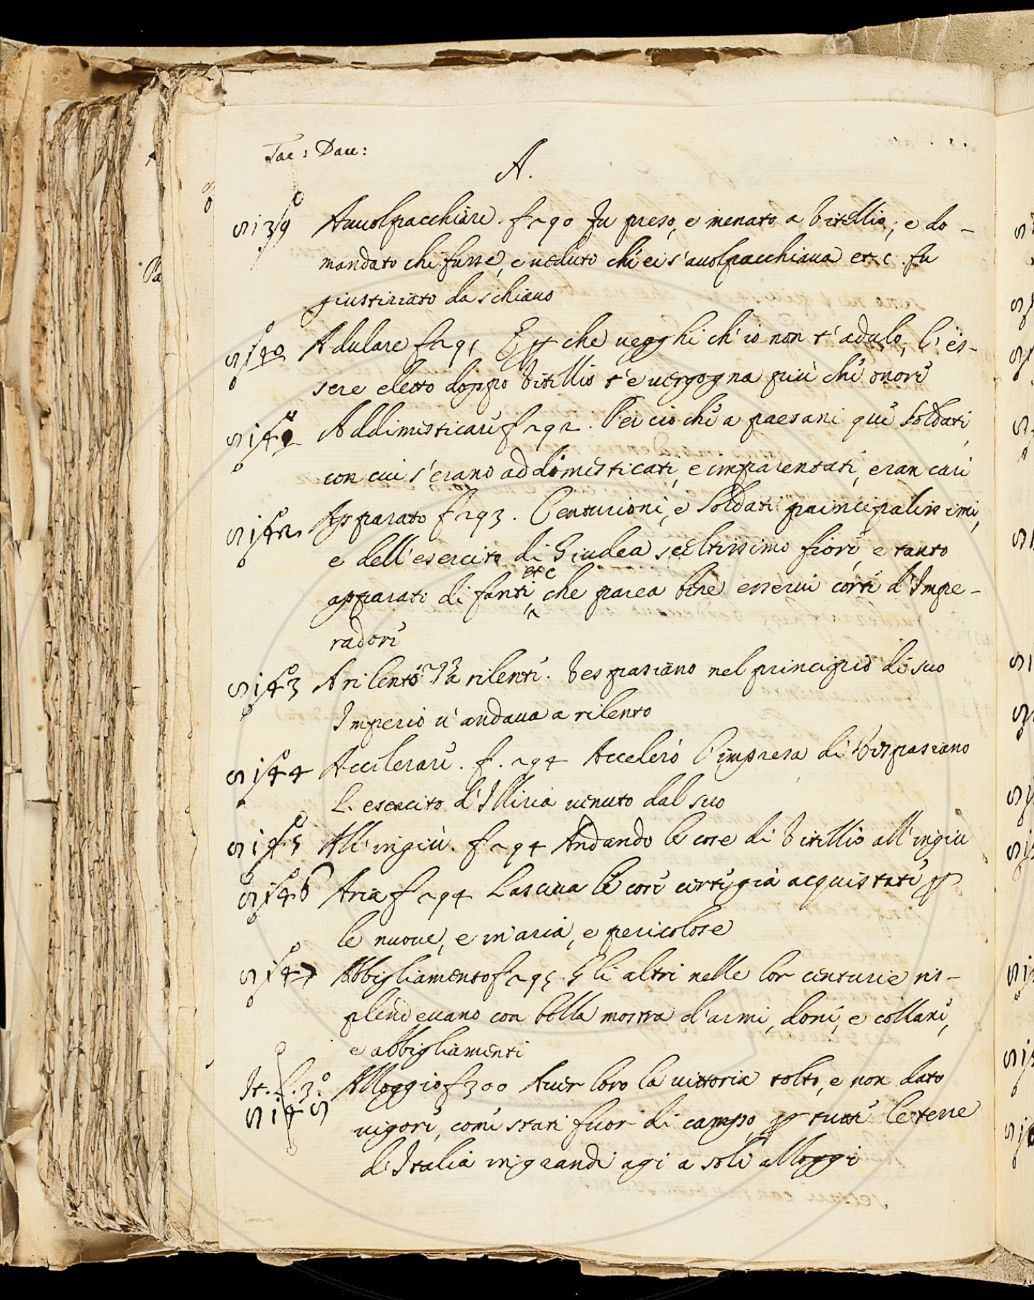 Tac: Dau:
A.
S139 Auuolpacchiare. f 290 Fu preso, e menato a Vitellio, e do-
mandato chi fusse, e ueduto ch'ei s'auolpacchiaua etc. fu
giustiziato da schiauo
S140 Adulare f 291 E per che uegghi ch'io non t'adulo, l'es-
sere eletto doppo Vitellio t'è uergogna più che onore
S141 Addimesticare f 292. Per ciò che a paesani que' soldati,
con cui s'erano addimesticati, e imparentati, eran cari
S142 Apparato f 293. Centurioni, e Soldati principalissimi,
e dell'esercito di Giudea sceltissimo fiore, e tanto
apparati di fanti etc che parea bene esserui corte d'Impe-
radore
S143 A rilento 293 a rilente. Vespasiano nel principio di suo
Imperio n'andaua a rilento
S144 Accilerare. f. 294 Accelerò l'impresa di Vespasiano
L'esercito d'Illiria uenuto dal suo
S145 All'ingiù. f 294 Andando le cose di Vitellio all'ingiù
S146 Aria f 294 Lasciua le cose certe già acquistate per
le nuoue, e in aria, e pericolose
S147 Abbigliamento f 295 Gli altri nelle lor centurie ri-
splendeuano con bella mostra d'armi, doni, e collane,
e abbigliamenti
It. l. 3.° Alloggio f 300 Auer loro la uittoria tolto, e non dato
S148 uigore, come stati fuor di campo per tutte le terre
d'Italia in grandi agi a soli alloggi